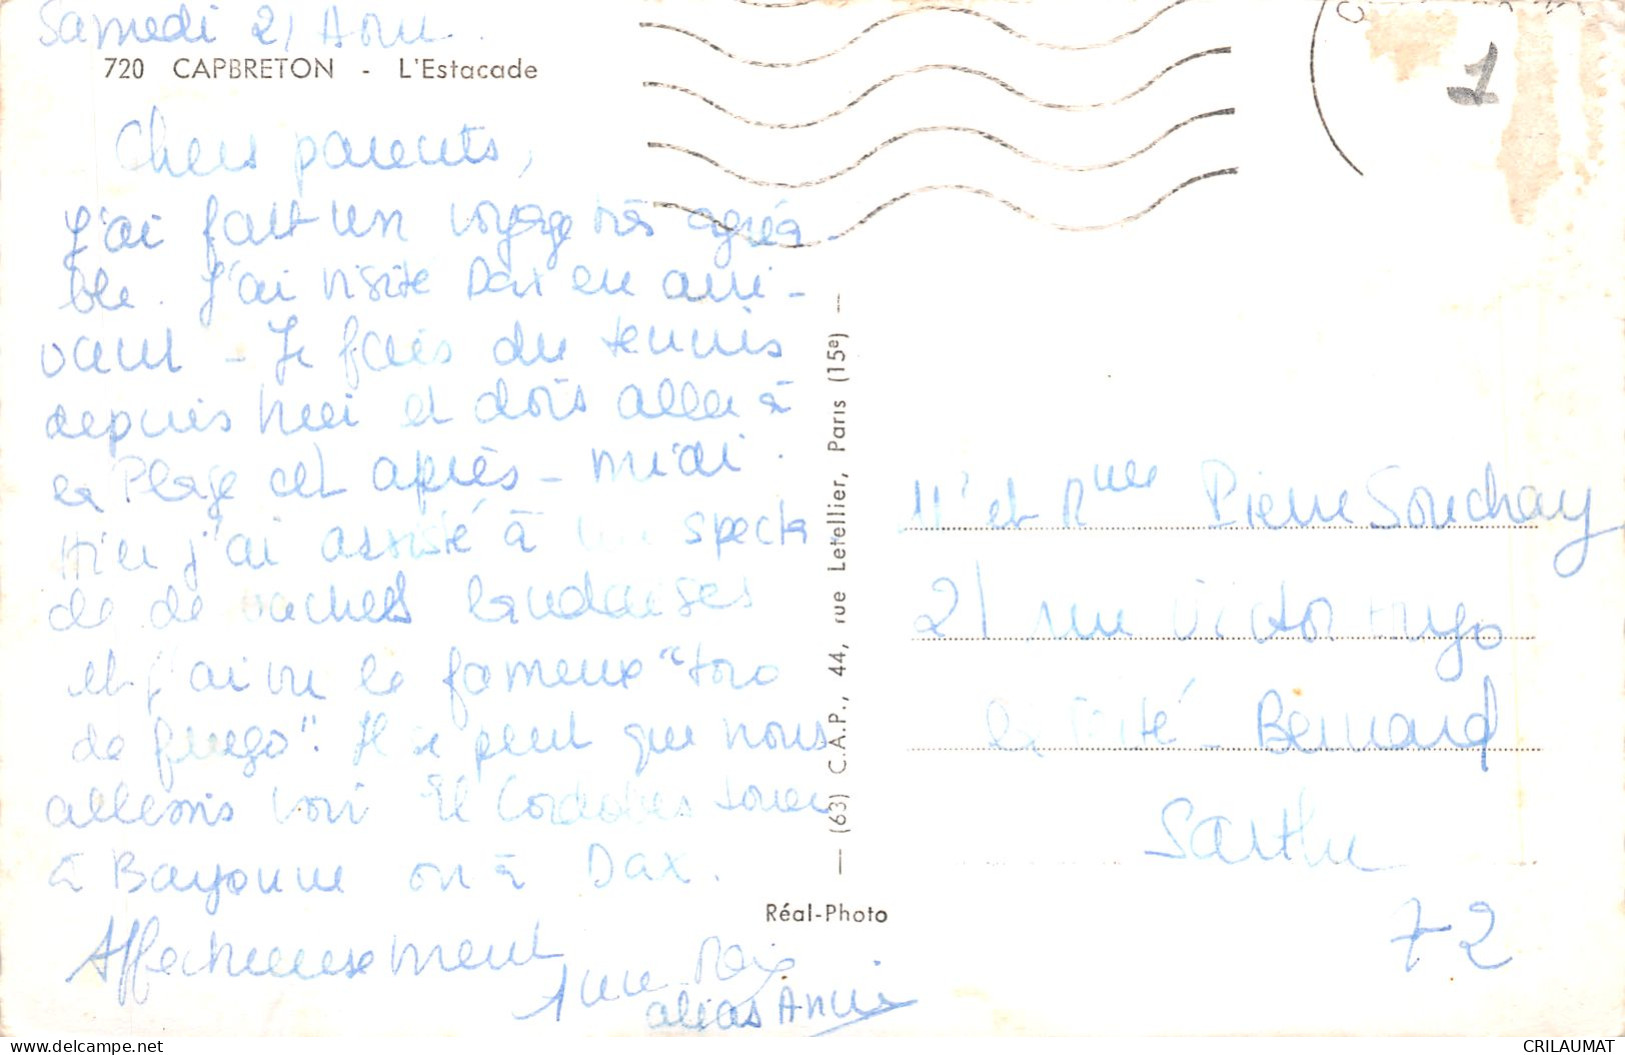 Samedi 21 Aout
720 CAPBRETON - L'Estacade
Chers parents,
J'ai fait un voyage très agréa-
ble. J'ai visité Dax en arri-
vant - Je fais du tennis
depuis hier et dois aller à
la Plage cet après-midi.
Hier j'ai assisté à un specta
cle de vaches landaises
et j'ai vu le fameux "toro
de fuego". Il se peut que nous
allions voir El Cordobes toréer
à Bayonne ou à Dax.
Affectueusement
alias Annie
(63) C.A.P., 44, rue Letellier, Paris (15e)
Réal-Photo
1
Mr et Mme Pierre Souchay
21 rue Victor Hugo
la Ferté-Bernard
Sarthe
72
CRILAUMAT